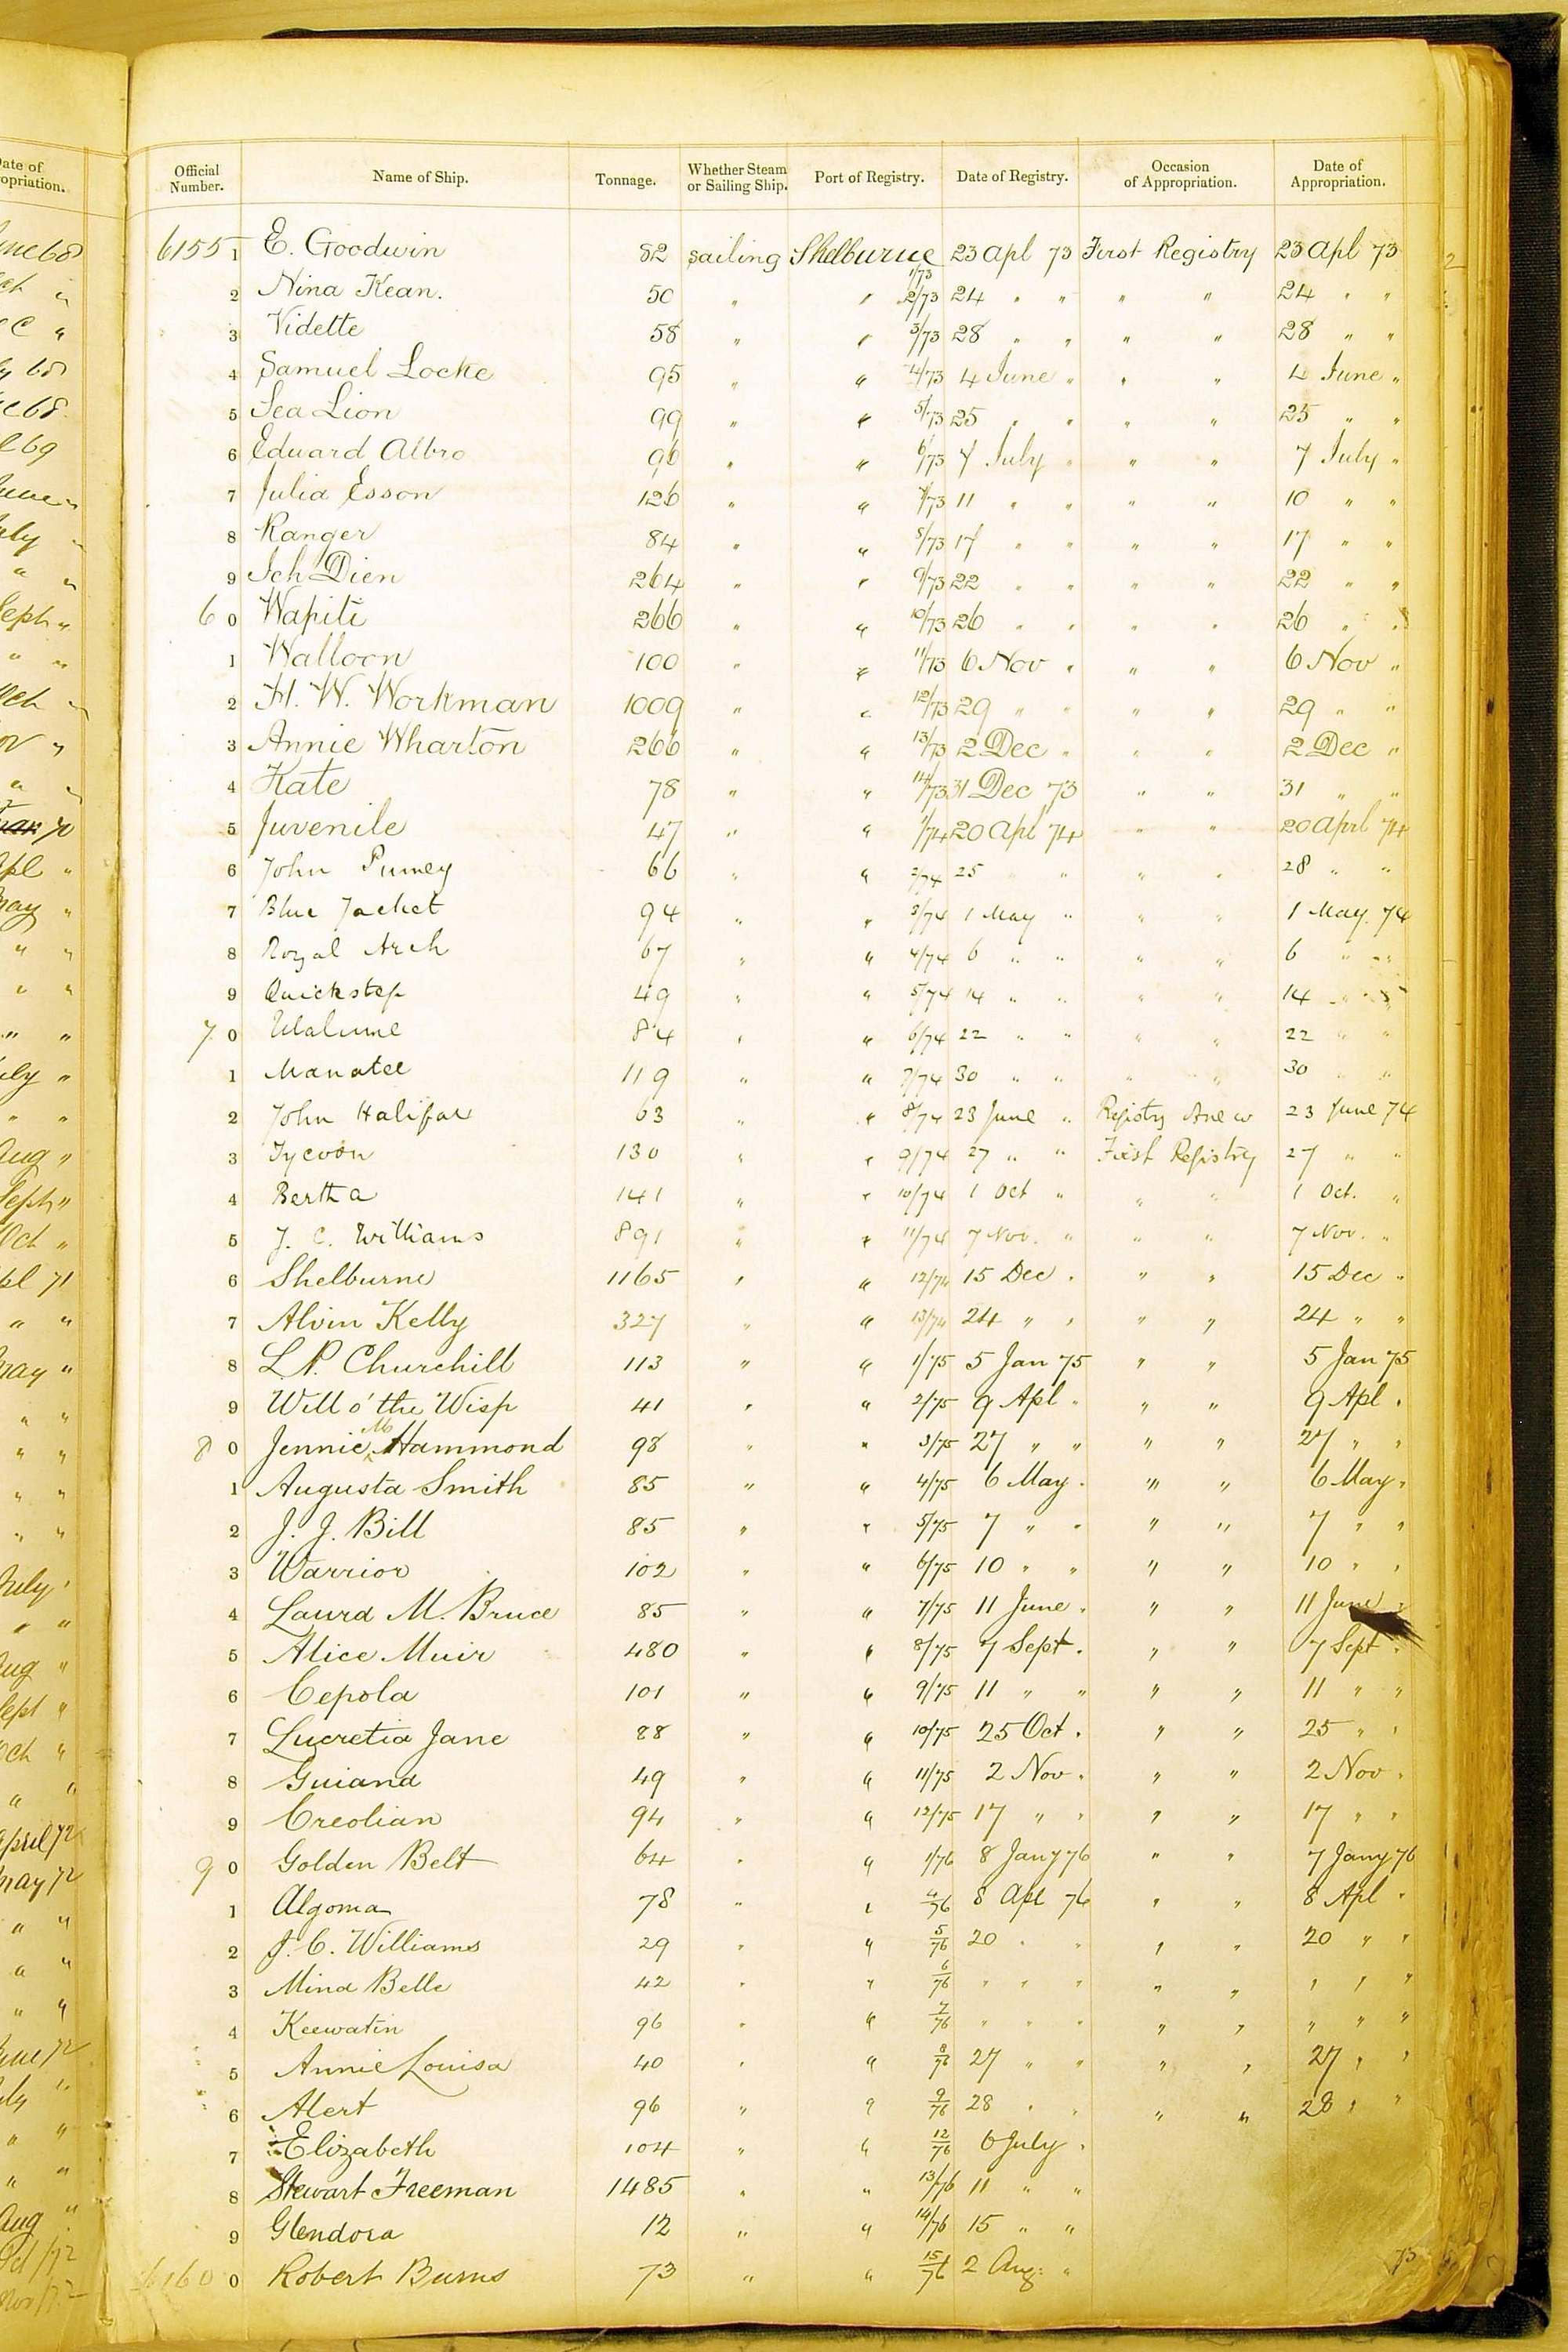 Date of Appropriation.
Official Number. Name of Ship. Tonnage. Whether Steam or Sailing Ship. Port of Registry. Date of Registry. Occasion of Appropriation. Date of Appropriation.
61551 E. Goodwin 82 sailing Shelburne 1/73 23 Apl 73 First Registry 23 Apl 73
2 Nina Kean. 50 " " 2/73 24 " " " " 24 " "
3 Vidette 58 " " 3/73 28 " " " " 28 " "
4 Samuel Locke 95 " " 4/73 4 June " " " 4 June "
5 Sea Lion 99 " " 5/73 25 " " " " 25 " "
6 Edward Albro 96 " " 6/73 7 July " " " 7 July "
7 Julia Esson 126 " " 7/73 11 " " " " 10 " "
8 Ranger 84 " " 8/73 17 " " " " 17 " "
9 Ich Dien 264 " " 9/73 22 " " " " 22 " "
6 0 Wapiti 266 " " 10/73 26 " " " " 26 " "
1 Walloon 100 " " 11/73 6 Nov " " " 6 Nov "
2 H. W. Workman 1009 " " 12/73 29 " " " " 29 " "
3 Annie Wharton 266 " " 13/73 2 Dec " " " 2 Dec "
4 Kate 78 " " 14/73 31 Dec 73 " " 31 " "
5 Juvenile 47 " " 1/74 20 Apl 74 " " 20 Aprl 74
6 John Purney 66 " " 2/74 25 " " " " 28 " "
7 Blue Jacket 94 " " 3/74 1 May " " " 1 May. 74
8 Royal Arch 67 " " 4/74 6 " " " " 6 " "
9 Quickstep 49 " " 5/74 14 " " " " 14 " "
7 0 Ulalume 84 " " 6/74 22 " " " " 22 " "
1 Manatee 119 " " 7/74 30 " " " " 30 " "
2 John Halifax 63 " " 8/74 23 June " Registry Anew 23 June 74
3 Tycoon 130 " " 9/74 27 " " First Registry 27 " "
4 Bertha 141 " " 10/74 1 Oct " " " 1 Oct. "
5 J. C. Williams 891 " " 11/74 7 Nov. " " " 7 Nov. "
6 Shelburne 1165 " " 12/74 15 Dec " " " 15 Dec "
7 Alvin Kelly 327 " " 13/74 24 " " " " 24 " "
8 L. P. Churchill 113 " " 1/75 5 Jan 75 " " 5 Jan 75
9 Will o' the Wisp 41 " " 2/75 9 Apl " " " 9 Apl "
8 0 Jennie M Hammond 98 " " 3/75 27 " " " " 27 " "
1 Augusta Smith 85 " " 4/75 6 May " " " 6 May "
2 J. J. Bill 85 " " 5/75 7 " " " " 7 " "
3 Warrior 102 " " 6/75 10 " " " " 10 " "
4 Laura M. Bruce 85 " " 7/75 11 June " " " 11 June "
5 Alice Muir 480 " " 8/75 7 Sept " " " 7 Sept "
6 Cepola 101 " " 9/75 11 " " " " 11 " "
7 Lucretia Jane 88 " " 10/75 25 Oct " " " 25 " "
8 Guiana 49 " " 11/75 2 Nov " " " 2 Nov "
9 Creolian 94 " " 12/75 17 " " " " 17 " "
9 0 Golden Belt 64 " " 1/76 8 Jany 76 " " 7 Jany 76
1 Algoma 78 " " 4/76 8 Apl 76 " " 8 Apl "
2 J. C. Williams 29 " " 5/76 20 " " " " 20 " "
3 Mina Belle 42 " " 6/76 " " " " " " " "
4 Keewatin 96 " " 7/76 " " " " " " " "
5 Annie Louisa 40 " " 8/76 27 " " " " 27 " "
6 Alert 96 " " 9/76 28 " " " " 28 " "
7 Elizabeth 104 " " 12/76 6 July "
8 Stewart Freeman 1485 " " 13/76 11 " "
9 Glendora 12 " " 14/76 15 " "
6160 0 Robert Burns 73 " " 15/76 2 Aug: "